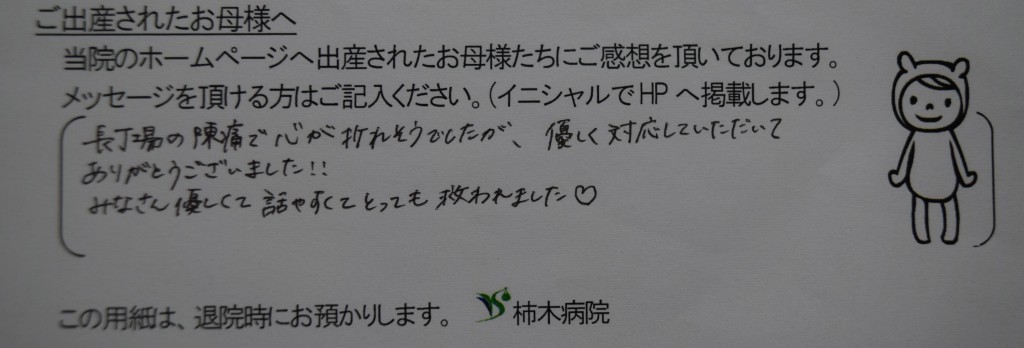 ご出産されたお母様へ
当院のホームページへ出産されたお母様たちにご感想を頂いております。
メッセージを頂ける方はご記入ください。（イニシャルでHPへ掲載します。）
長丁場の陣痛で心が折れそうでしたが、優しく対応していただいて
ありがとうございました!!
みなさん優しくて話やすくてとっても救われました♡
この用紙は、退院時にお預かりします。 柿木病院